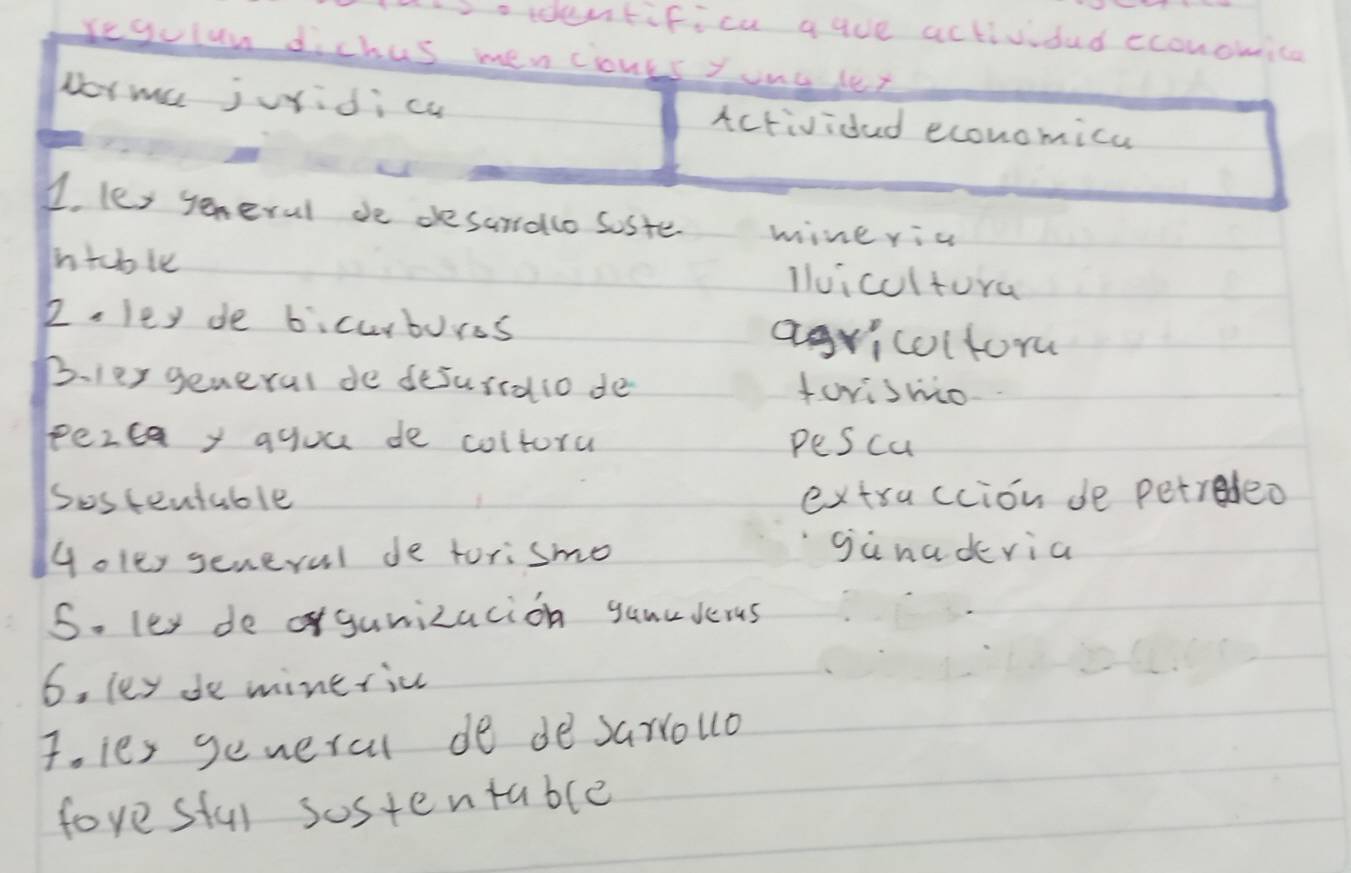 identifica a que actividad economica
regulan dichas menciones y una ley
Norma juridica
Actividad economica
1. ley general de desarrollo suste
ntable
2. ley de bicarburos
3. ley general de desarrollo de
pezca y agua de coltora
sostentable
4. ley general de turismo
5. ley de organización ganaderas
6. ley de mineria
7. ley general de desarrollo
forestal sostentable
mineria
lluicultura
agricoltora
turismo
pesca
extracción de petroleo
ganaderia